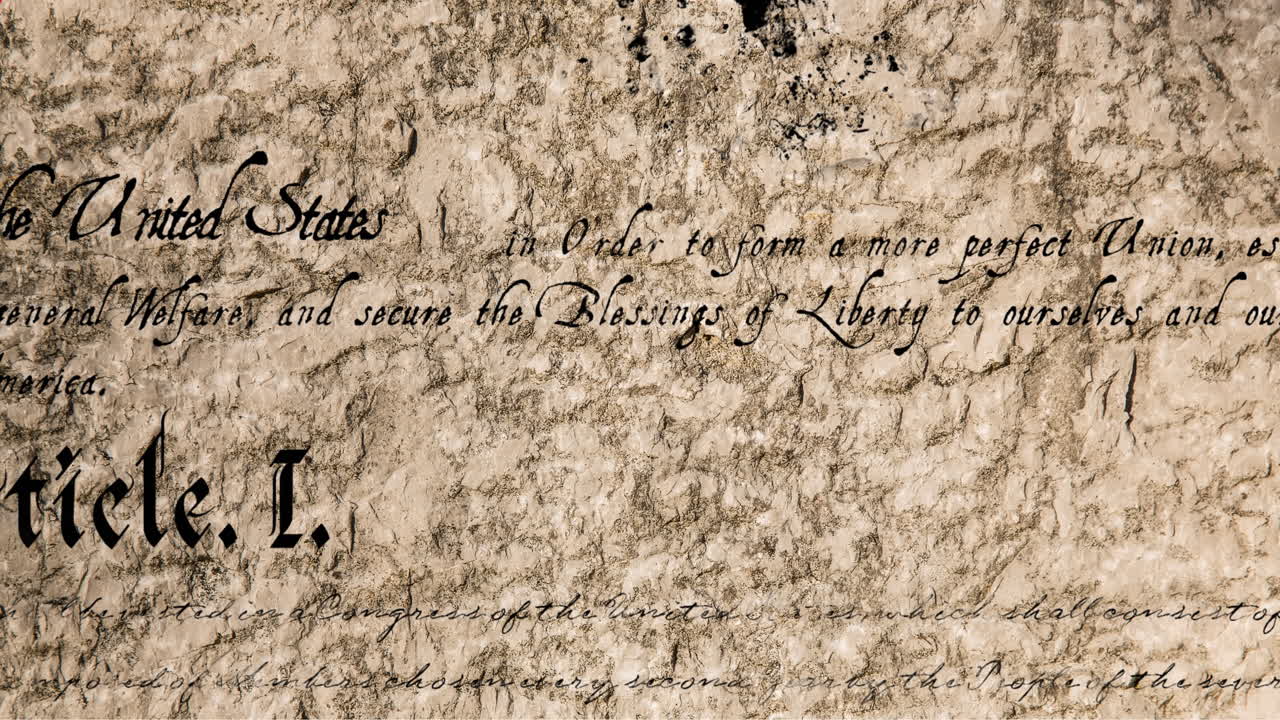 he United States
in Order to form a more perfect Union, es
general Welfare, and secure the Blessings of Liberty to ourselves and ou
merica.
ticle. I.
vested in a Congress of the United which shall consist of
mposed of Members chosen every second by the People of the sever